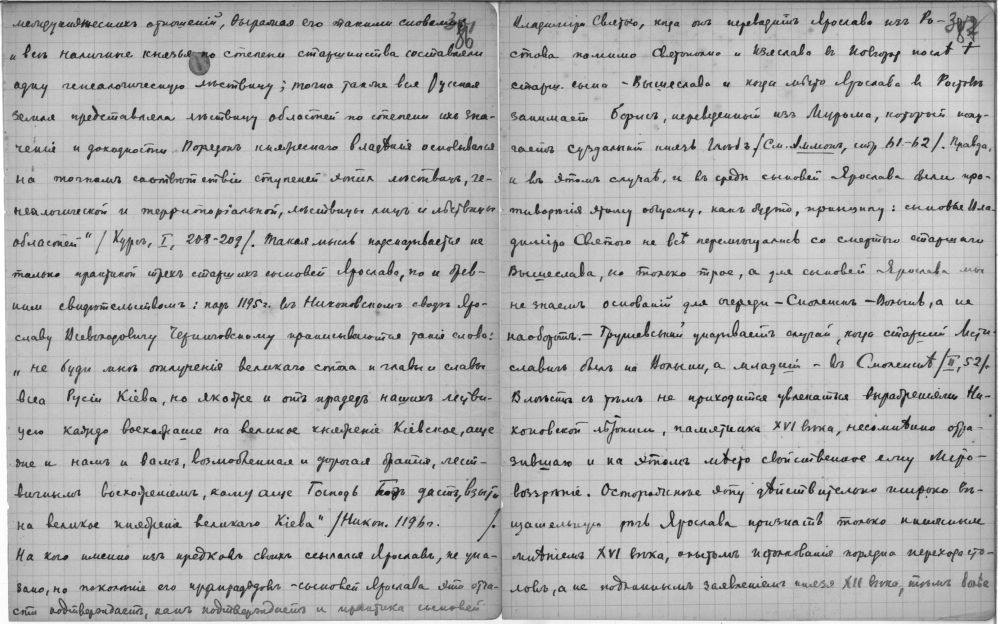 междукняжескихъ отношеній, выражая его такими словами:
и всѣ наличные князья по степени старшинства составляли
одну генеалогическую лѣствицу; точно такъ же вся Русская
земля представляла лѣствицу областей по степени ихъ зна-
ченія и доходности. Порядокъ княжескаго владѣнія основывался
на точномъ соотвѣтствіи ступеней этихъ лѣствицъ, ге-
неалогической и территоріальной, лѣствицы лицъ и лѣствицы
областей" /Курсъ, I, 208-209/. Такая мысль подсказывается не
только практикой трехъ старшихъ сыновей Ярослава, но и древ-
нимъ свидѣтельствомъ: подъ 1195 г. въ Никоновскомъ сводѣ Яро-
славу Всеволодовичу Черниговскому приписываются такія слова:
„не буди мнѣ отлученія великаго стола и главы и славы
всеа Русіи Кіева, но якоже и отъ прадедъ нашихъ лествi-
цею каждо восхожаше на великое княженіе Кіевское, аще
же и намъ и вамъ, возлюбленная и дорогая братiя, лест-
вичнымъ восхоженіемъ, кому аще Господь Богъ дастъ, взыти
на великое княженіе великаго Кіева" /Никон. 1196 г. /.
На кого именно изъ предковъ своихъ ссылался Ярославъ, не ука-
зано, но поколѣніе его прапрадѣдовъ - сыновей Ярослава это отча-
сти подтверждаетъ, какъ подтверждаетъ и практика сыновей
86
387
Владиміра Святого, когда онъ переводитъ Ярослава изъ Ро-
стова помимо Святополка и Изяслава въ Новгородъ послѣ †
старш. сына - Вышеслава и когда мѣсто Ярослава въ Ростовѣ
занимаетъ Борисъ, переведенный изъ Мурома, который полу-
чаетъ суздальскій князь Глѣбъ /См. Аммонъ, стр. 61-62/. Правда,
и въ этомъ случаѣ, и въ средѣ сыновей Ярослава были про-
тиворѣчія этому общему, какъ будто, принципу: сыновья Вла-
диміра Святого не всѣ перемѣщались со смертью старшаго
Вышеслава, но только трое, а для сыновей Ярослава мы
не знаемъ основаній для очереди - Смоленскъ - Волынь, а не
наоборотъ. - Грушевський указываетъ случай, когда старшій Мсти-
славичъ былъ на Волыни, а младшій - въ Смоленскѣ /II, 52/.
Вмѣстѣ съ тѣмъ не приходится увлекаться выраженіями Ни-
коновской лѣтописи, памятника XVI вѣка, несомнѣнно отра-
зившаго и на этомъ мѣстѣ свойственное ему міро-
воззрѣніе. Осторожнѣе эту дѣйствительно широко вѣ-
щательную рѣчь Ярослава признать только книжнымъ
мнѣніемъ XVI вѣка, опытомъ истолкованія порядка перехода сто-
ловъ, а не подлиннымъ заявленіемъ князя XII вѣка, тѣмъ болѣе